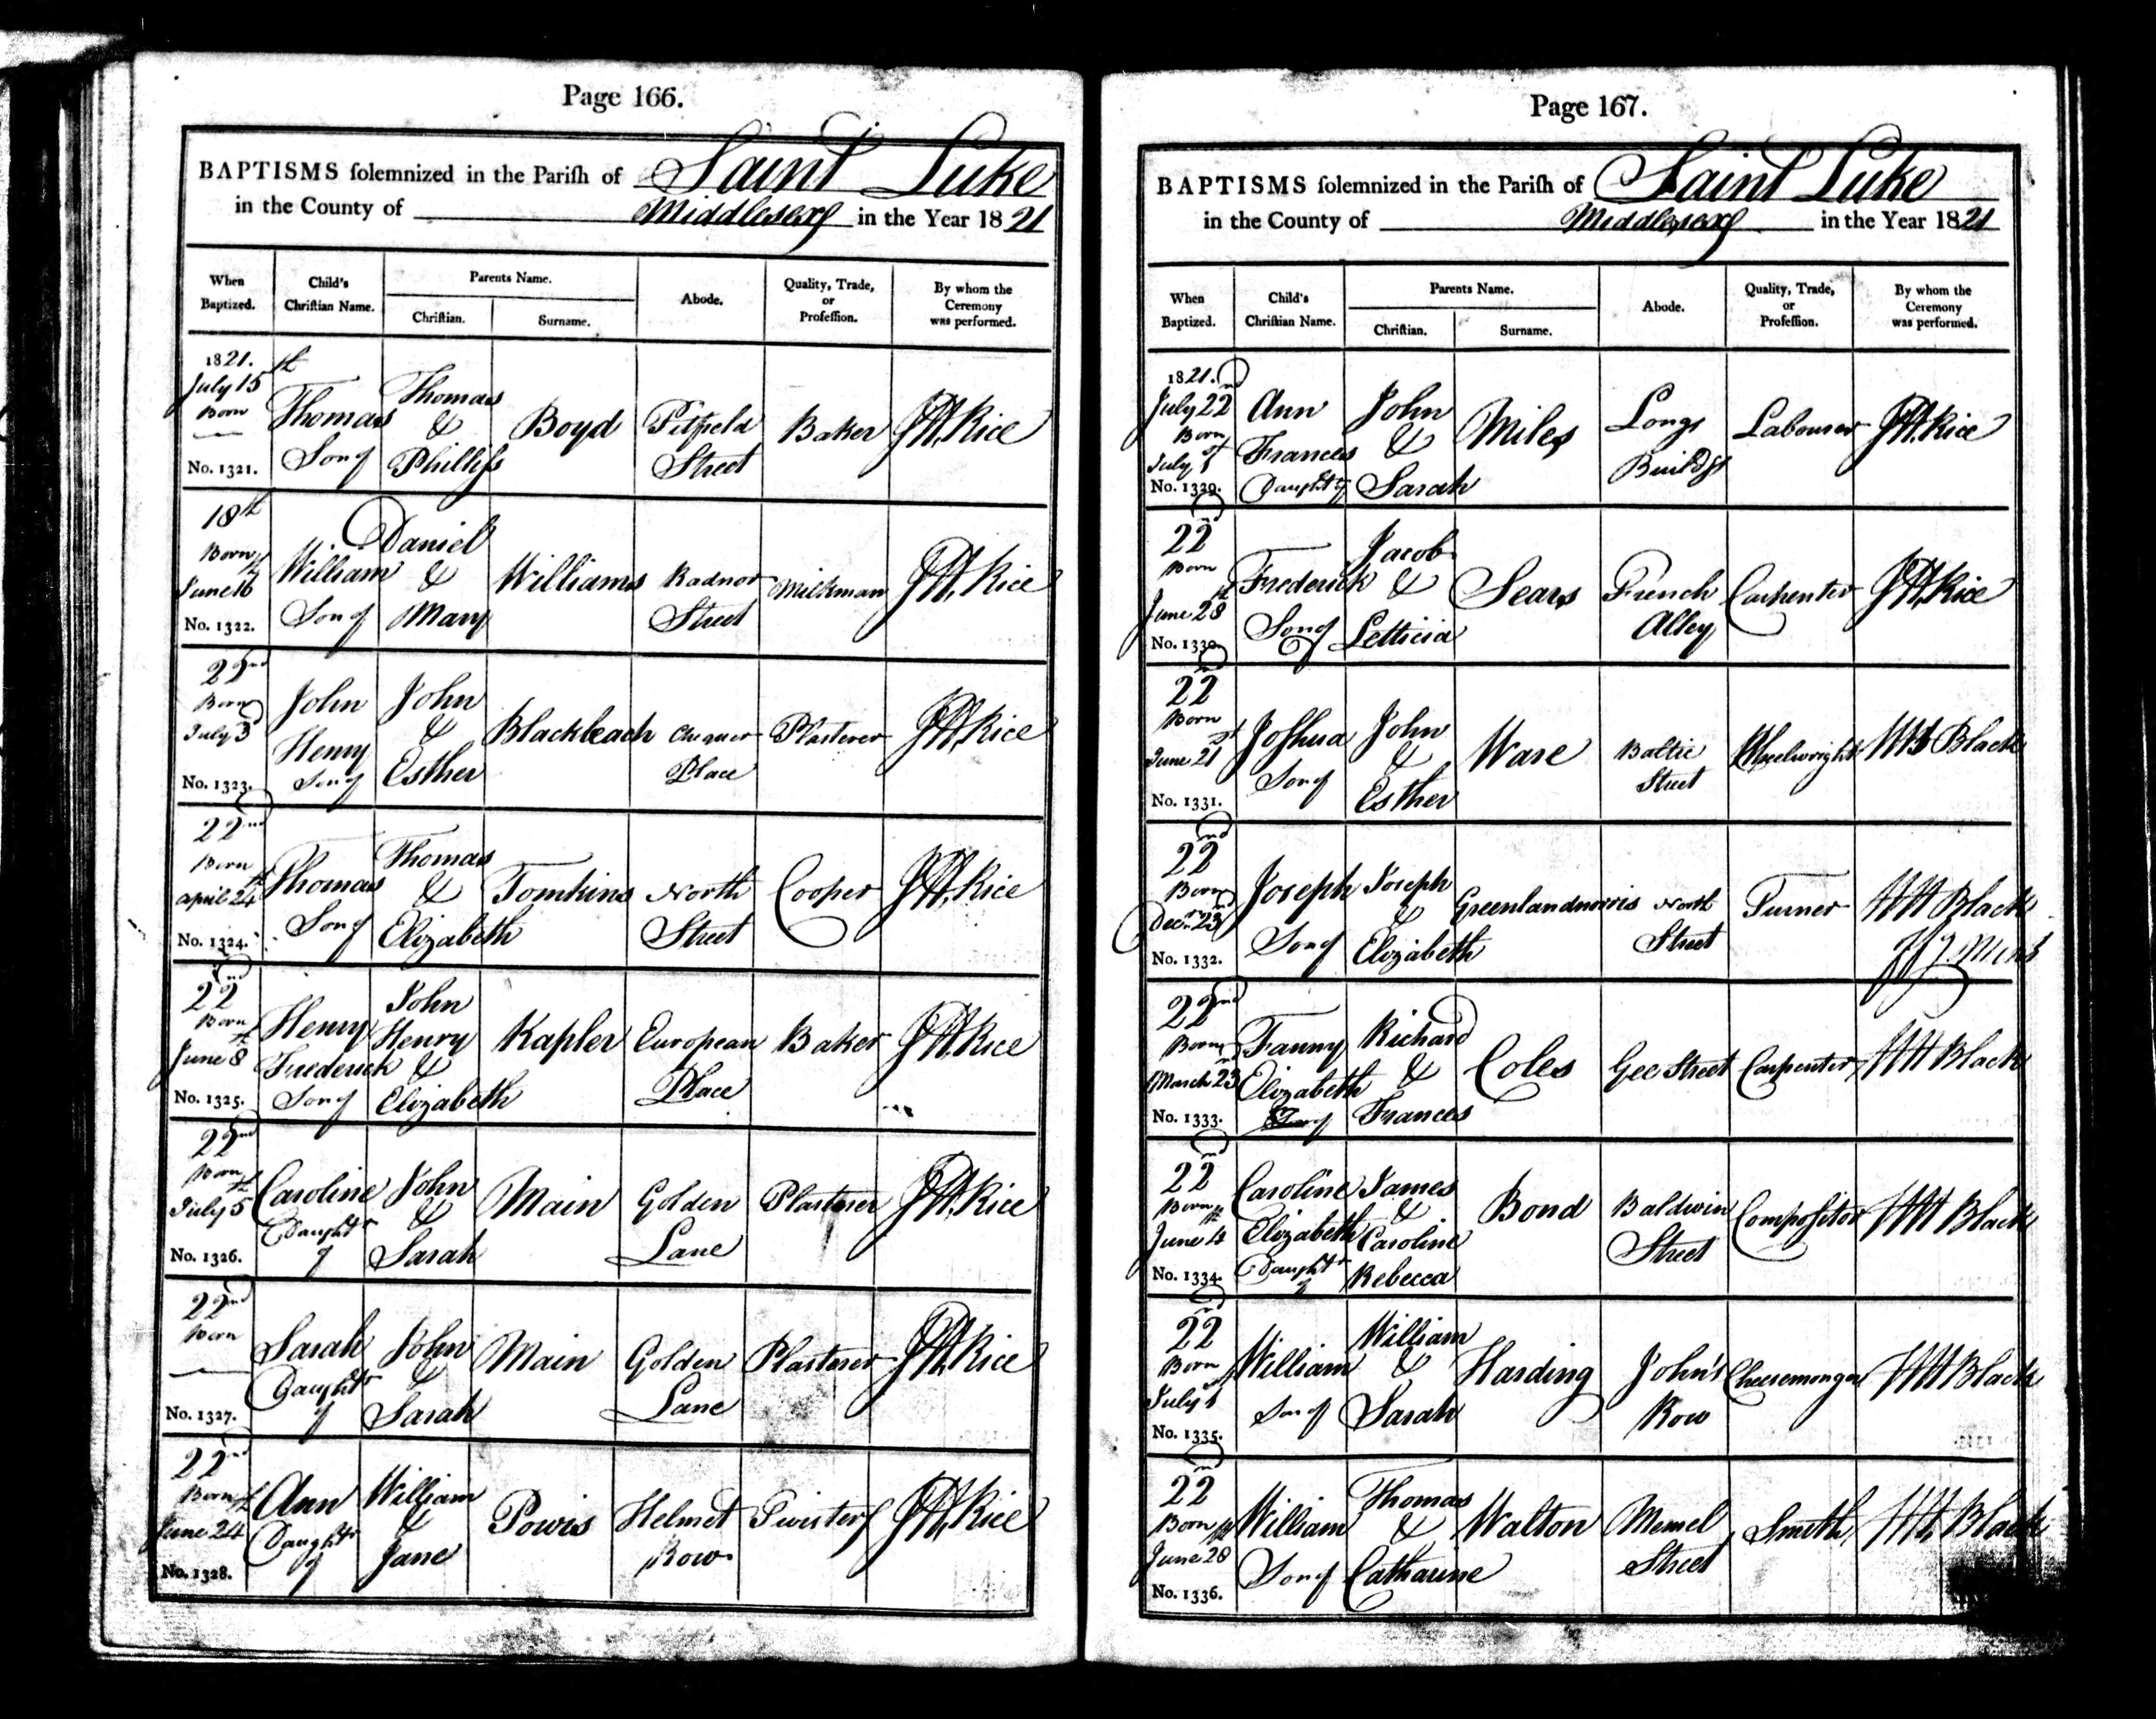 Page 166.
BAPTISMS solemnized in the Parish of Saint Luke
in the County of Middlesex in the Year 1821
When Baptized. Child's Christian Name. Parents Name. Christian. Surname. Abode. Quality, Trade, or Profession. By whom the Ceremony was performed.
1821. July 15th Born No. 1321. Thomas Son of Thomas & Phillis Boyd Pitfield Street Baker Rice
18th Born June 16th No. 1322. William Son of Daniel & Mary Williams Radnor Street Milkman Rice
22nd Born July 3d No. 1323. John Henry Son of John & Esther Blackbeach Chequer Place Plasterer Rice
22nd Born April 24th No. 1324. Thomas Son of Thomas & Elizabeth Tomkins North Street Cooper Rice
22nd Born June 8th No. 1325. Henry Frederick Son of John Henry & Elizabeth Kapler European Place Baker Rice
22nd Born July 5th No. 1326. Caroline Daughtr of John & Sarah Main Golden Lane Plasterer Rice
22nd Born No. 1327. Sarah Daughtr of John & Sarah Main Golden Lane Plasterer Rice
22nd Born June 24th No. 1328. Ann Daughtr of William & Jane Powis Helmet Row Rice
Page 167.
BAPTISMS solemnized in the Parish of Saint Luke
in the County of Middlesex in the Year 1821
When Baptized. Child's Christian Name. Parents Name. Christian. Surname. Abode. Quality, Trade, or Profession. By whom the Ceremony was performed.
1821. July 22nd Born July 1st No. 1329. Ann Frances Daughtr of John & Sarah Miles Longs Buildgs Labourer Rice
22nd Born June 28th No. 1330. Frederick Son of Jacob & Letticia Sears French Alley Carpenter Rice
22nd Born June 21st No. 1331. Joshua Son of John & Esther Ware Baltic Street Wheelwright Black
22nd Born Decr. 23d No. 1332. Joseph Son of Joseph & Elizabeth Greenlandnorris North Street Turner Black
22nd Born March 23d No. 1333. Fanny Elizabeth of Richard & Frances Coles Gee Street Carpenter Black
22nd Born June 4th No. 1334. Caroline Elizabeth Daughtr of James & Caroline Rebecca Bond Baldwin Street Compositor Black
22nd Born July 1st No. 1335. William Son of William & Sarah Harding John's Row Cheesemonger Black
22nd Born June 28th No. 1336. William Son of Thomas & Catharine Walton Memel Street Smith Black